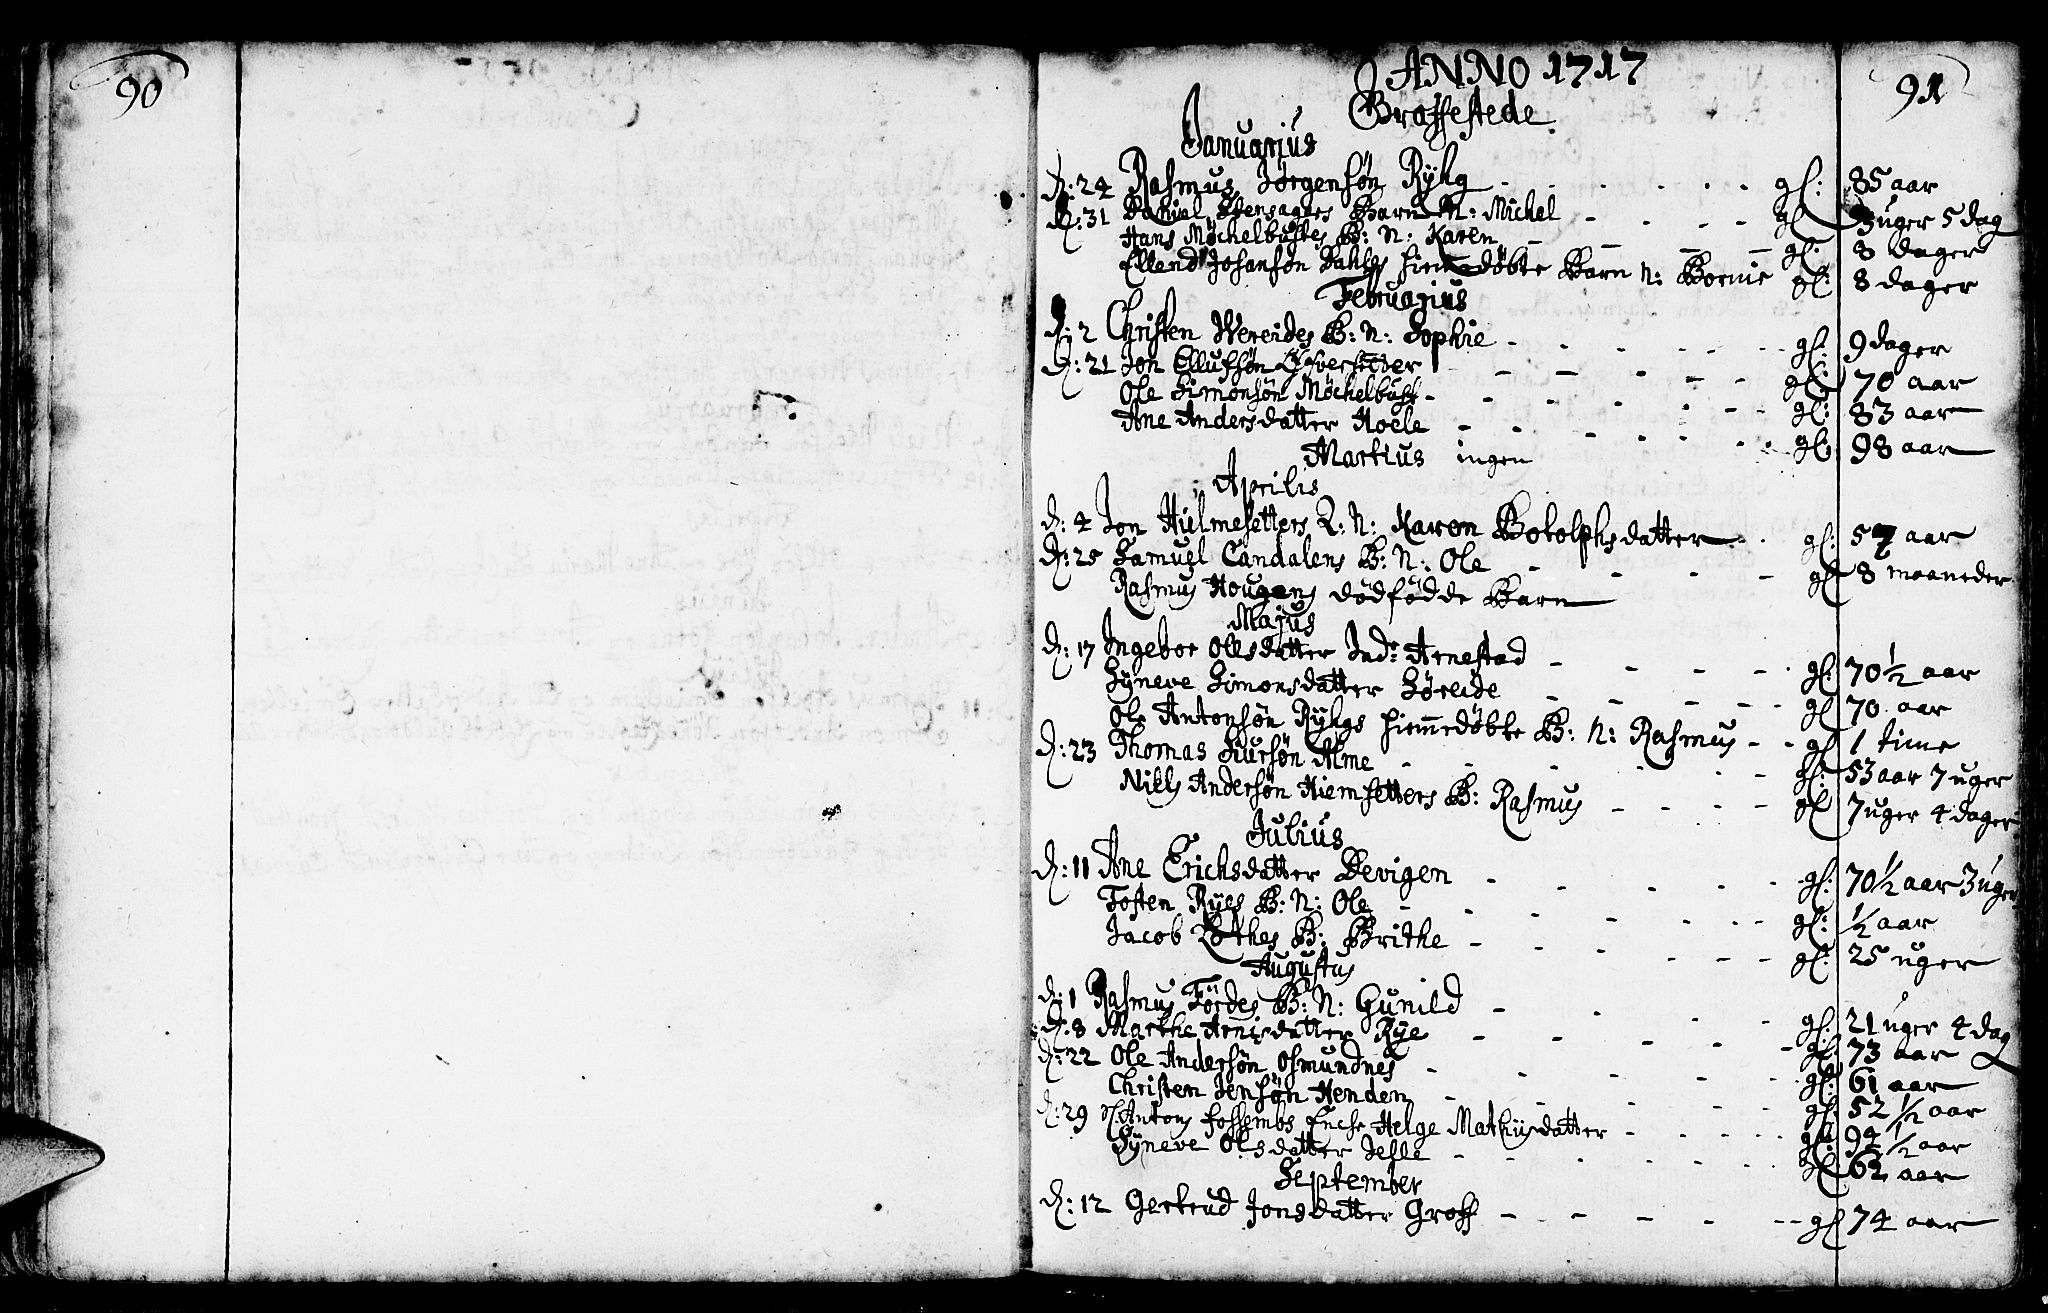 90
ANNO 1717
91
Graffestede
Januarius
d: 24 Rasmus Jørgensøn Rÿhg - - - - gl: 85 aar
d: 31 Daniel Stensagers Barn N: Michel - - - - gl 3 uger 5 dag
Hans Möchelbustes B: N: Karen - - - - gl: 8 dager
Ellend Josansøn Dahles hiemedøbte Barn N: gl: 8 dager
Februarius
d: 2 Christen Wereides B: N: Sophie - - - - gl: 9 dager
d: 21 Jon Ellufsøn - - - - gl: 70 aar
Ole Simonsøn Möchelbust - - - - gl: 83 aar
Ane Andersdatter Hoele - - - - gl: 98 aar
Martius ingen
Aprilis
d: 4 Jon Hielmesetters Q: N: Karen Botolphsdatter - - gl: 57 aar
d: 25 Samuel Candalens B: N: Ole - - - - gl 8 maaneder
Rasmus Hougens dødfødde Barn
Majus
d: 17 Ingebor Olesdatter Ind: Arnestad - - - - gl: 70 1/2 aar
Sÿneve Simonsdatter Söreide - - - - gl 70 aar
Ole Antonsøn Rÿhgs hiemedøbte B: N: Rasmus - - gl 1 time
d: 23 Thomas Siursøn Alme - - - - gl: 53 aar 7 uger
Niels Andersøn Hiemsetters B: Rasmus - - - - gl 7 uger 4 dager
Julius
d: 11 Ane Erichsdatter Devigen - - - - gl: 70 1/2 aar 3 uger
Tosten Rÿes B: N: Ole - - - - gl: 1/2 aar
Jacob Lothes B: Brithe - - - - gl: 25 uger
Augustus
d: 1 Rasmus Fördes B: N: Gunild - - - - gl: 21 uger 4 dag
d: 8 Marthe Arnisdatter Rÿe - - - - gl: 73 aar
d: 22 Ole Andersøn Osmundnes - - - - gl: 61 aar
Christen Jensøn Henden - - - - gl: 52 1/2 aar
d: 29 Sl: Antons Fossembs Encke Helge Mathiisdatter - - - - gl: 94 1/2 aar
Sÿneve Olsdatter Jesle - - - - gl 62 aar
September
d: 12 Gertrud Jonsdatter Groff - - - - gl 74 aar